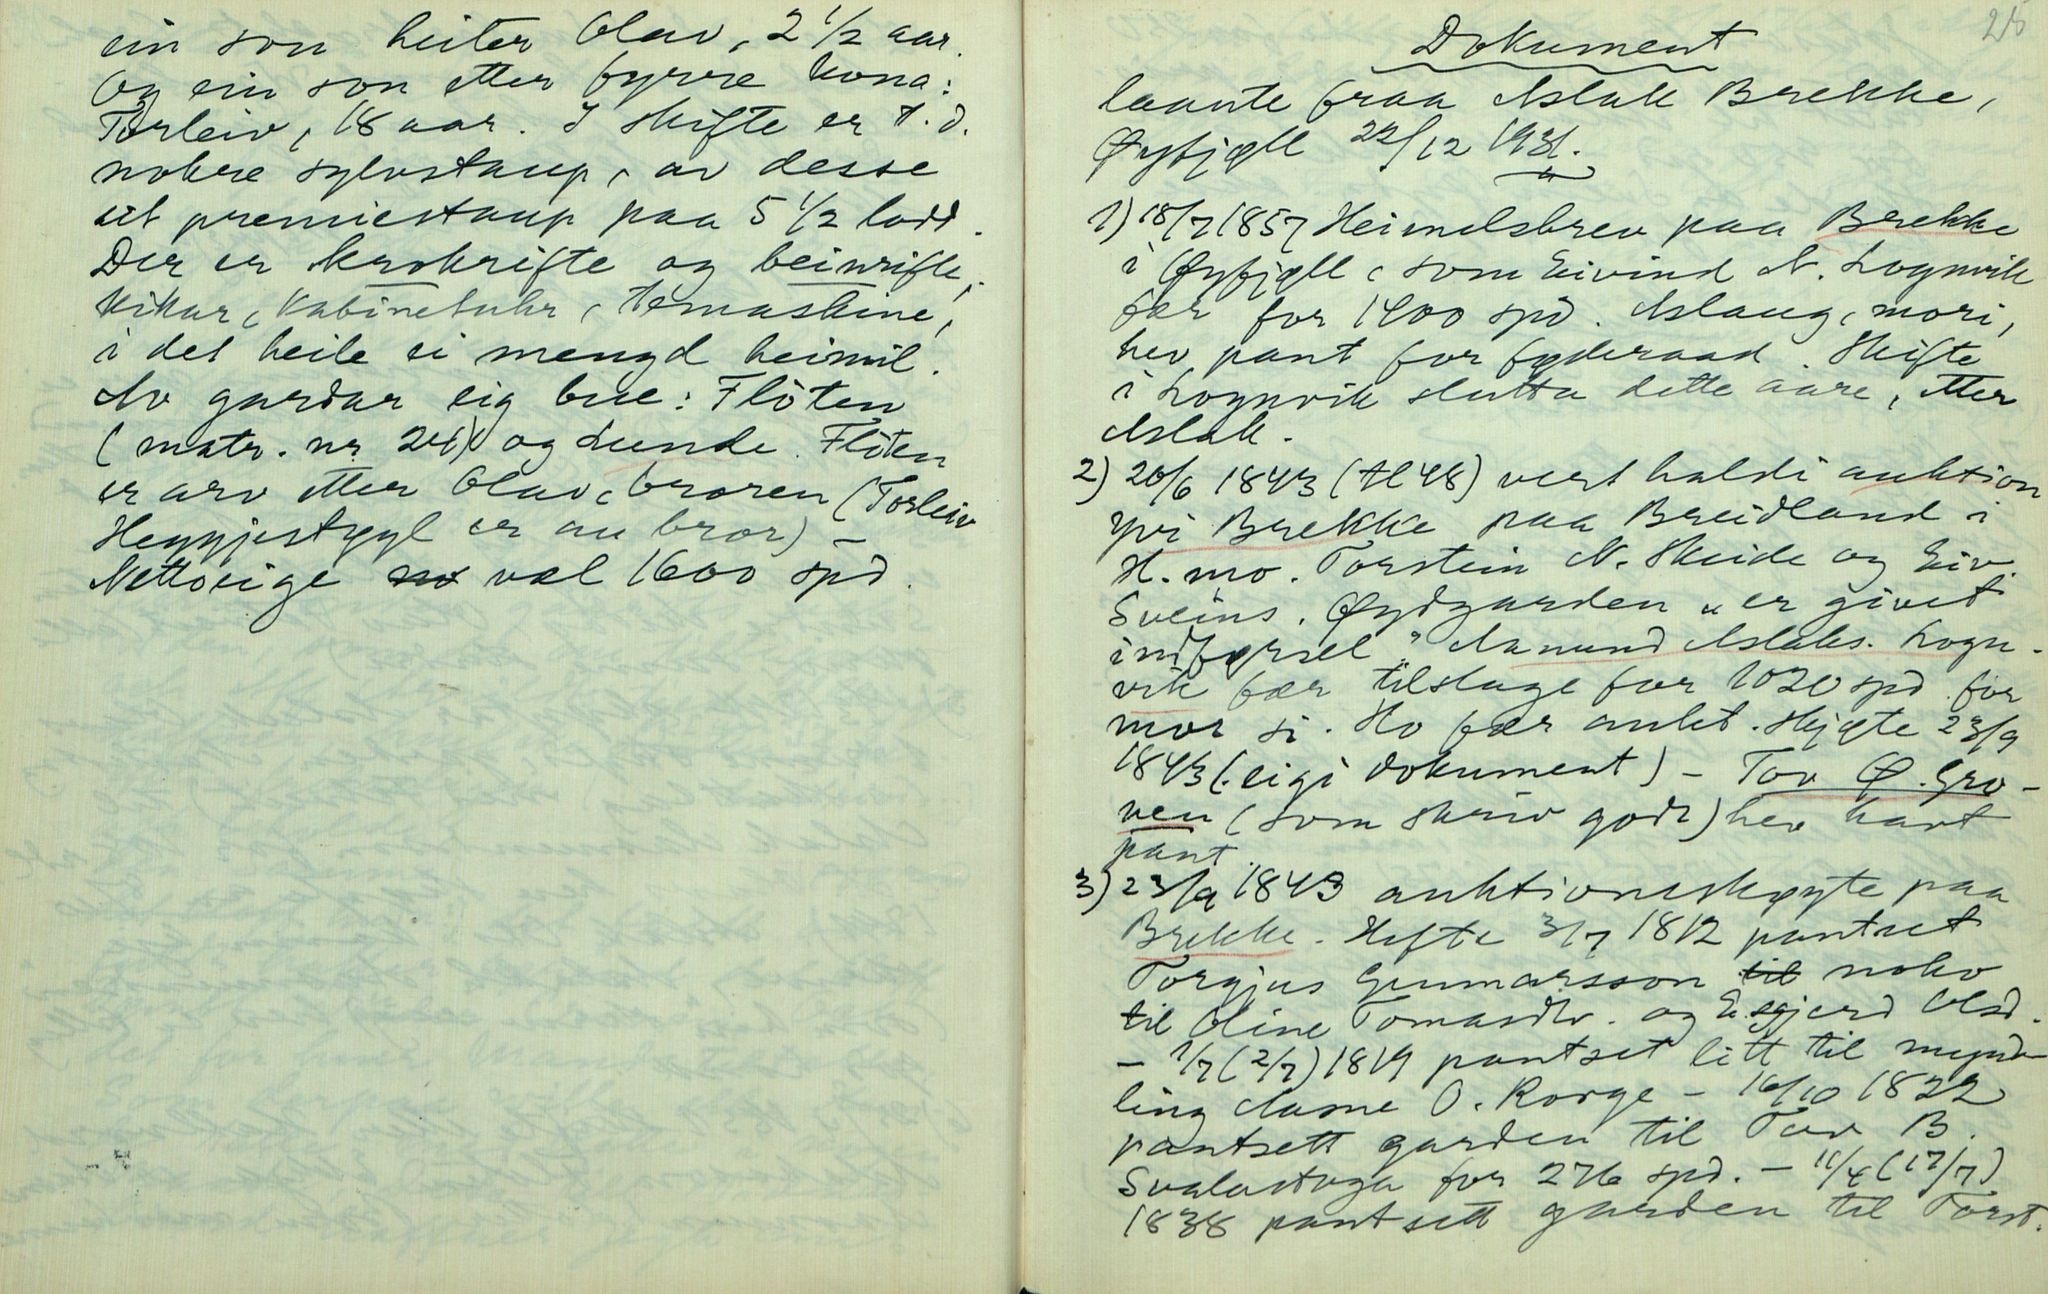 ein son heiter Olav, 2 1/2 aar.
Og ein son etter fyrre kona:
Torleiv, 18 aar. I skifte er t. d.
nokre sylvstaup, av desse
eit premiestaup paa 5 1/2 lodd.
Der er krokrifle og beinrifle,
kikar, kabinetuhr, temaskine,
i det heile ei mengd heimil.
Av gardar eig bue: Flöten
(matr. nr 24) og Lunde. Flöten
er arv etter Olav, broren (Torleiv
Heggjestøyl er au bror) –
Nettoeige val 1600 spd.
25
Dokument
laante fraa Aslak Brekke,
Øyfjell 22/12 1931.
1) 18/7 1857 Heimelsbrev paa Brekke
i Øyfjell, som Eivind A. Lognvik
fær for 1400 spd. Aslaug, mori,
hev pant for fyderaad. Skifte
i Lognvik slutta dette aare, etter
Aslak.
2) 26/6 1843 (Al 48) vert haldi auktion
yvi Brekke paa Breidland i
H. mo. Torstein N. Skeide og Eiv.
Sveins. Øydgarden "er givet
indførsel". Aamund Aslaks. Logn-
vik fær tilslage for 1020 spd for
mor si. Ho fær aukt. skjøte 23/9
1843 (. eigi dokument) – Tov Ø. Gro-
ven (som skriv godt) hev havt
pant.
3) 23/9 1843 auktionsskøyte paa
Brekke. Hefte 3/7 1812 pantset
Torgjus Gunnarsson til noko
til Oline Tomasdtr. og E. sgjerd Olsd.
– 1/7 (2/7) 1819 pantset litt til mynd-
ling Aasne O. Rorge – 16/10 1822
pantsett garden til Tov B.
Svalastoga for 276 spd. – 11/4 (17/7)
1838 pantsett garden til Torst.